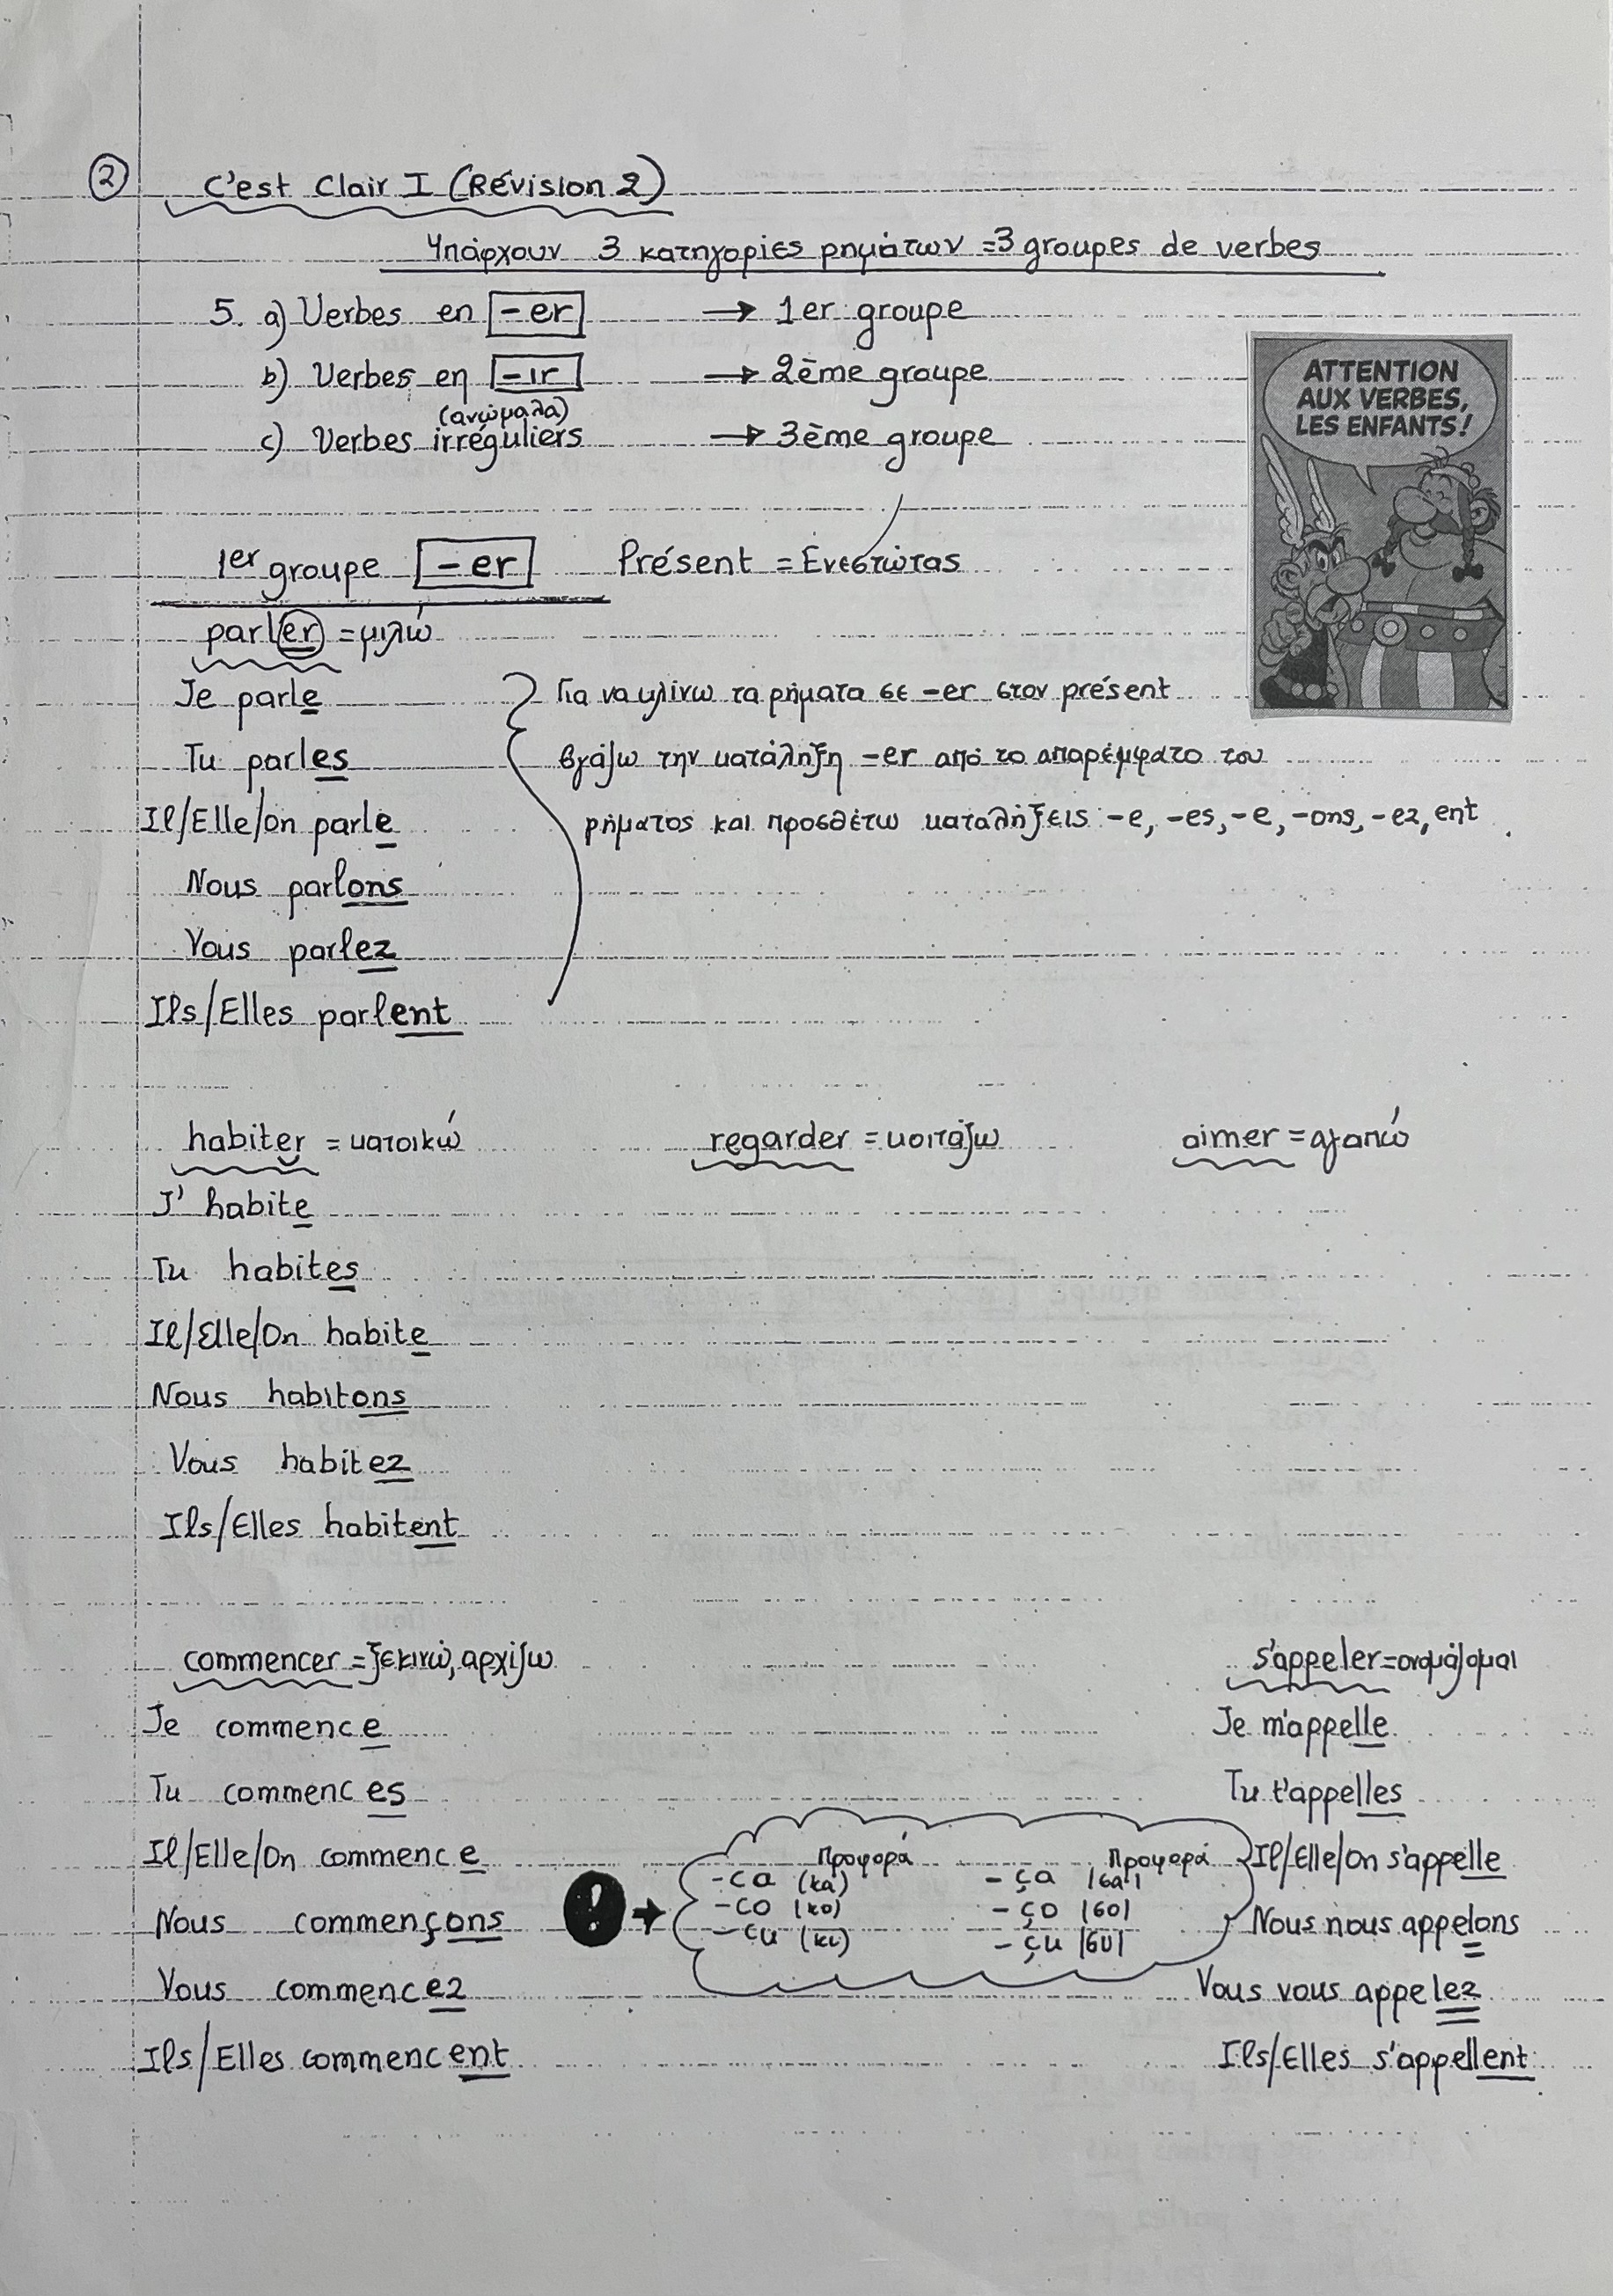 2
C'est Clair I (Révision 2)
Υπάρχουν 3 κατηγορίες ρημάτων =3 groupes de verbes
5. a) Verbes en -er → 1er groupe
b) Verbes en -ir → 2ème groupe
(ανώμαλα)
c) Verbes irréguliers → 3ème groupe
ATTENTION
AUX VERBES,
LES ENFANTS!
1er groupe -er Présent = Ενεστώτας
parler = μιλώ
Je parle
Για να κλίνω τα ρήματα σε -er στον présent
Tu parles
βγάζω την κατάληξη -er από το απαρέμφατο του
Il/Elle/on parle
ρήματος και προσθέτω καταλήξεις -e, -es, -e, -ons, -ez, ent
Nous parlons
Vous parlez
Ils/Elles parlent
habiter = κατοικώ regarder = κοιτάζω aimer = αγαπώ
J' habite
Tu habites
Il/Elle/On habite
Nous habitons
Vous habitez
Ils/Elles habitent
commencer = ξεκινώ, αρχίζω s'appeler = ονομάζομαι
Je commence Je m'appelle
Tu commences Tu t'appelles
Il/Elle/On commence Il/Elle/On s'appelle
Προφορά Προφορά
-ca (κα) -ça |σα|
! → -co (κο) -ço |σο|
-cu (κι) -çu |συ|
Nous commençons Nous nous appelons
Vous commencez Vous vous appelez
Ils/Elles commencent Ils/Elles s'appellent